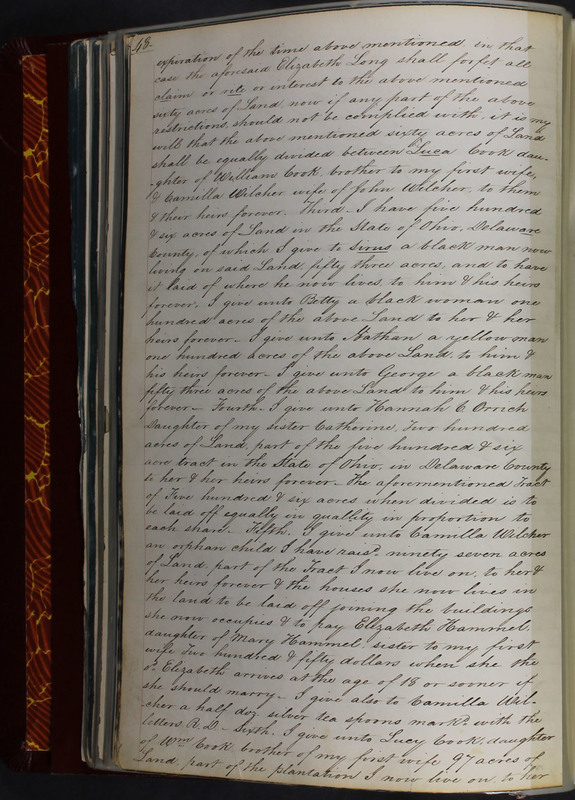 48.
expiration of the time above mentioned in that
case the aforesaid Elizabeth Long shall forfet all
claim or title or interest to the above mentioned
sixty acres of Land, now if any part of the above
restrictions, should not be complied with, it is my
will that the above mentioned sixty acres of Land
shall be equally divided between Luca Cook dau-
-ghter of William Cook, brother to my first wife,
& Camilla Wilcher wife of John Wilcher, to them
& their heirs forever. Third. I have five hundred
& six acres of Land in the State of Ohio, Delaware
County, of which I give to Sirus a black man now
living on said Land, fifty three acres, and to have
it laid of where he now lives, to him & his heirs
forever. I give unto Betty a black woman one
hundred acres of the above Land to her & her
heirs forever – I give unto Nathan, a yellow man
one hundred acres of the above Land, to him &
his heirs forever – I give unto George a black man
fifty three acres of the above Land, to him & his heirs
forever – Fourth. I give unto Hannah C. Orrick
Daughter of my sister Catherine, two hundred
acres of Land, part of the five hundred & six
acre tract in the State of Ohio, in Delaware County
to her & her heirs forever – The aforementioned Tract
of Five hundred & six acres when divided is to
be laid off equally in quallity in proportion to
each share – Fifth. I give unto Camilla Wilcher
an orphan child I have raisd, ninety seven acres
of Land, part of the Tract I now live on, to her &
her heirs forever & the houses she now lives in
the land to be laid off joining the buildings
she now occupies & to pay Elizabeth Hammel,
daughter of Mary Hammel, sister to my first
wife Two hundred & fifty dollars when she the
sd. Elizabeth arrives at the age of 18 or sooner if
she should marry – I give also to Camilla Wil-
cher a half doz. silver tea spoons markd with the
letters R. D. – Sixth. I give unto Lucy Cook, daughter
of Wm Cook, brother of my first wife 97 acres of
Land, part of the plantation I now live on, to her